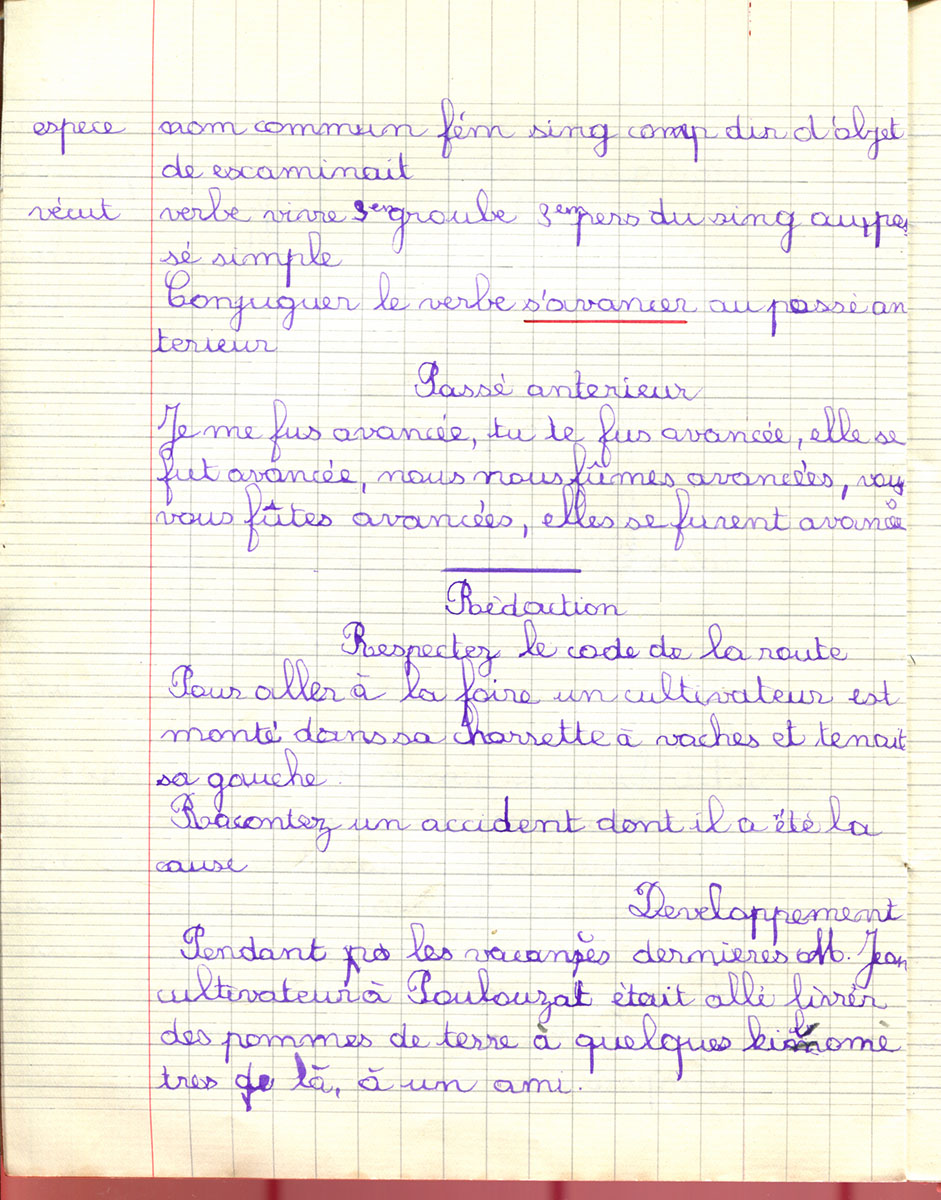 espece nom commun fém sing comp dir d'objet
de escaminait
vécut verbe vivre 3em groube 3em pers du sing au pas
sé simple
Conjuguer le verbe s'avancer au passé an
terieur
Passé anterieur
Je me fus avancée, tu te fus avancée, elle se
fut avancée, nous nous fûmes avancées, vous
vous fûtes avancées, elles se furent avancé
Rédaction
Respectez le code de la route
Pour aller à la foire un cultivateur est
monté dans sa charrette à vaches et tenait
sa gauche.
Racontez un accident dont il a été la
cause
Developpement
Pendant les vacances dernieres M. Jean
cultivateur à Poulouzat était allé livrer
des pommes de terre à quelques kilomè
tres de là, à un ami.